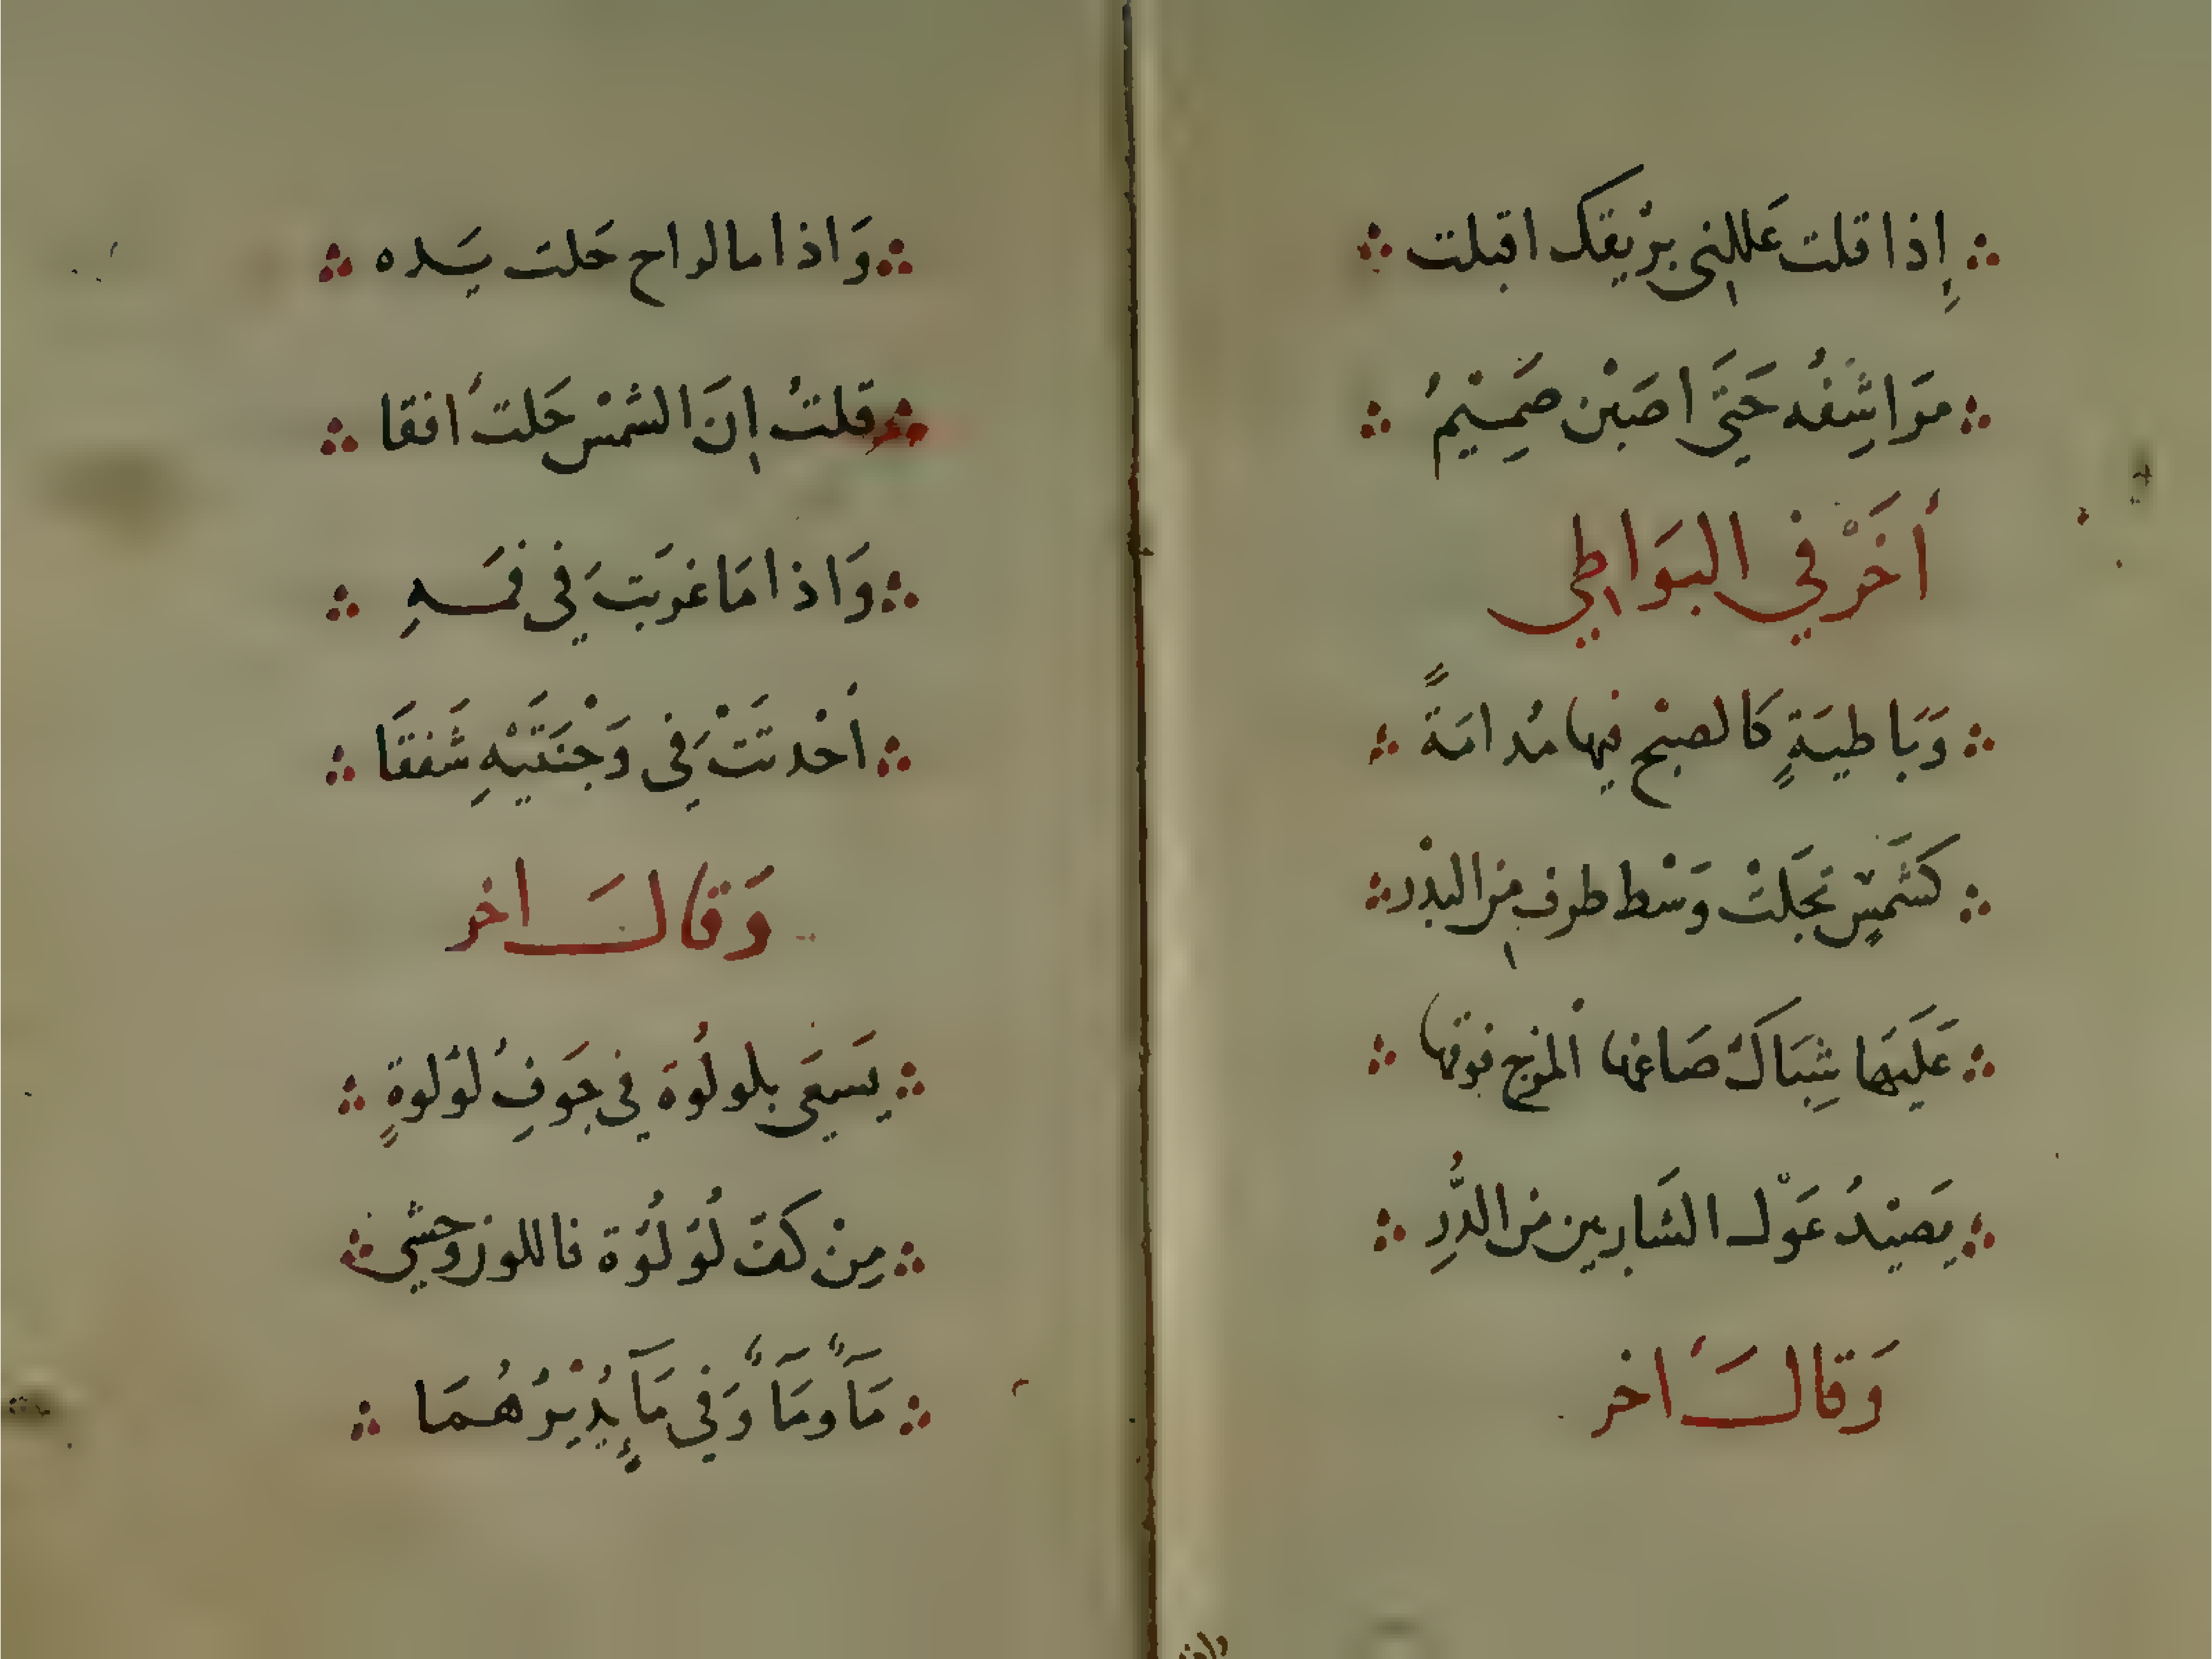 إِذا قلت عَللني بريقك اقبلت
مَراشِفُه حَتَّى اصَبْن صَمِيْمُ
أخَرْ في البوَاطِي
وَبَاطيَةٍ كَالصبْح فيها مُدامَةً
كَشَمْسٍ تجَلتْ وَسْط طرف مِنَ البدْر
عَلَيهَا شِبَاكٌ صَاغها المزْج فوقها
يَصيْدُ عَوّل الشَاربين مْن الدُّرِ
وَقالَ اخر
وَاذا ما لراح حَلت يَده
قلتُ إنَ الشمْس حَلت أفقا
وَاذا مَا غرَبَتَ في فمَهِ
أخْدثَتْ في وَجْنَتَيْهِ شَفقَا
وَقالَ اخر
يَسعَى بلولُوة في جَوفِ لؤلوةٍ
مِنْ كفَ لُؤلُؤة فاللوز وحشي
مَآً ومَآً وَفي مَآءٍ يُدِيْرُهُمَا